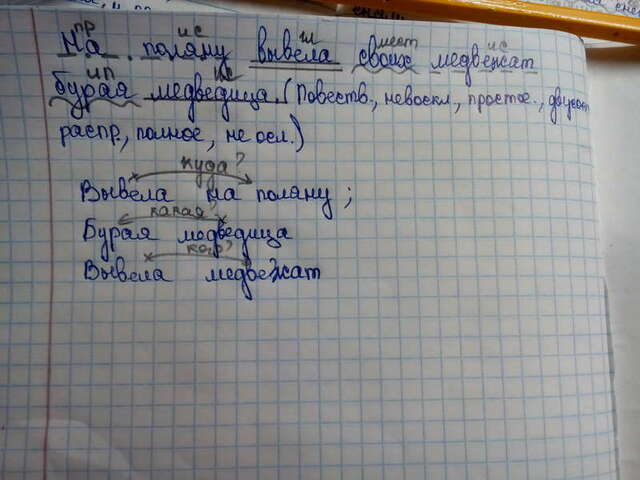 пр ис гл мест ис
На поляну вывела своих медвежат
ип ис
бурая медведица. (Повеств., невоскл., простое., двусост
распр., полное, не осл.)
куда?
Вывела на поляну;
какая?
Бурая медведица
кого?
Вывела медвежат